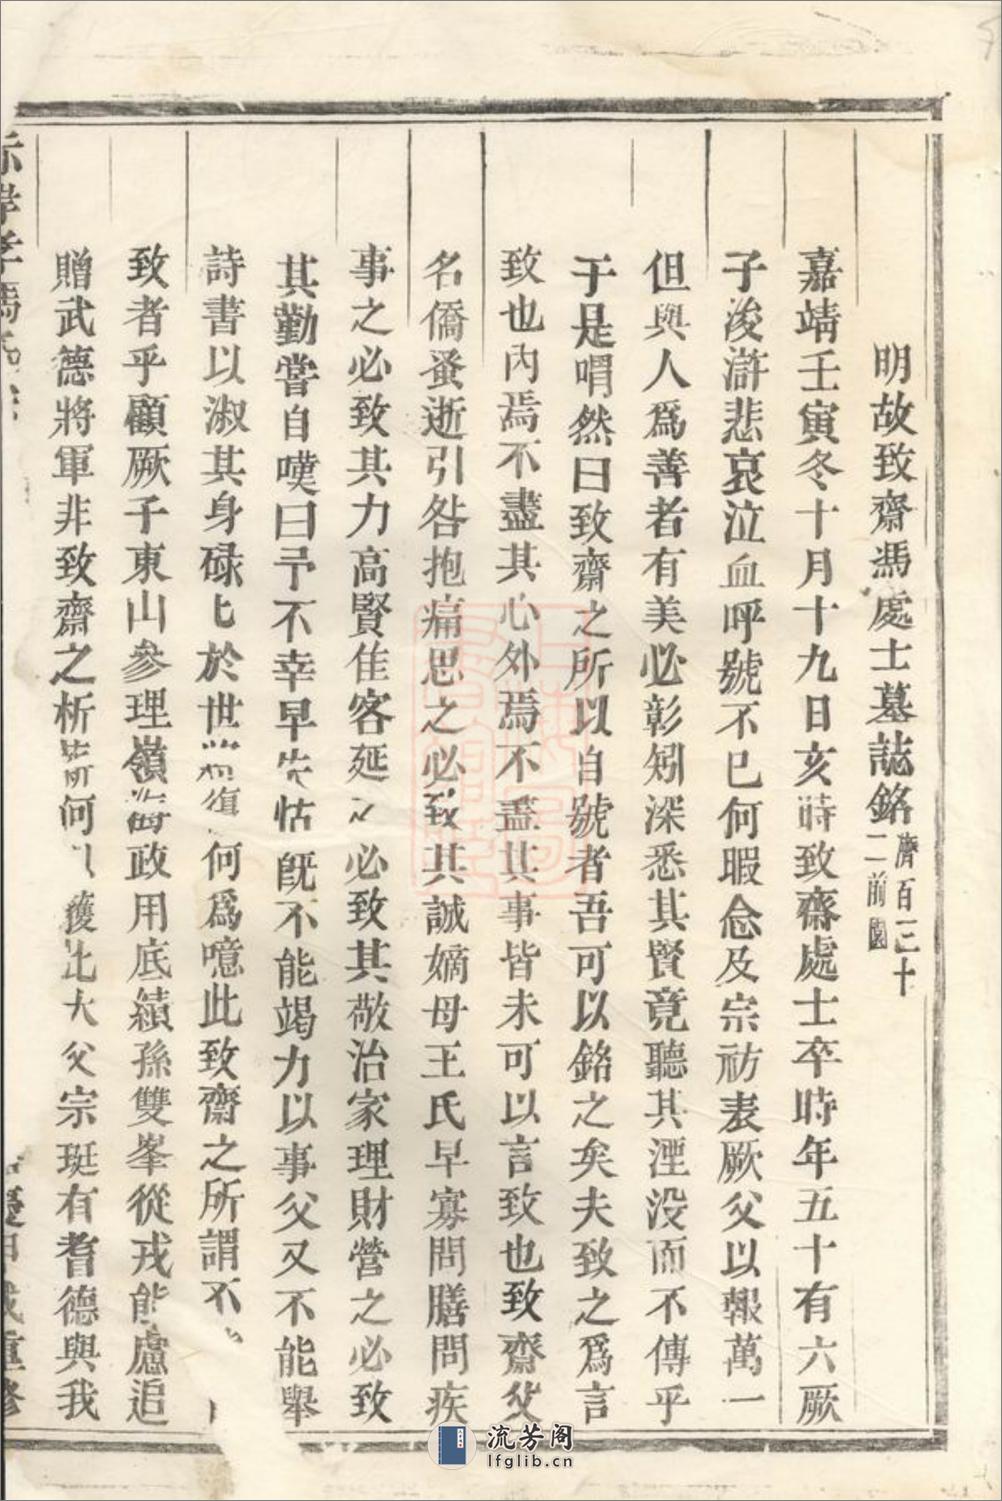 明故致齋馮處士墓誌銘
齊百三十
二前園
嘉靖壬寅冬十月十九日亥時致齋處士卒時年五十有六厥
子浚滸悲哀泣血呼號不已何暇念及宗祊表厥父以報萬一
但與人爲善者有美必彰矧深悉其賢竟聽其湮没而不傳乎
于是喟然曰致齋之所以自號者吾可以銘之矣夫致之爲言
致也内焉不盡其心外焉不盡其事皆未可以言致也致齋父
名僑蚤逝引咎抱痛思之必致其誠嫡母王氏早寡問膳問疾
事之必致其力高賢佳客延之必致其敬治家理財營之必致
其勤嘗自嘆曰予不幸早失怙既不能竭力以事父又不能舉
詩書以淑其身碌匕於世復何爲噫此致齋之所謂不
致者乎顧厥子東山參理嶺海政用底績孫雙峯從戎能慮追
贈武德將軍非致齋之析薪何以獲此大父宗珽有耆德與我
重修
流芳阁
lfglib.cn